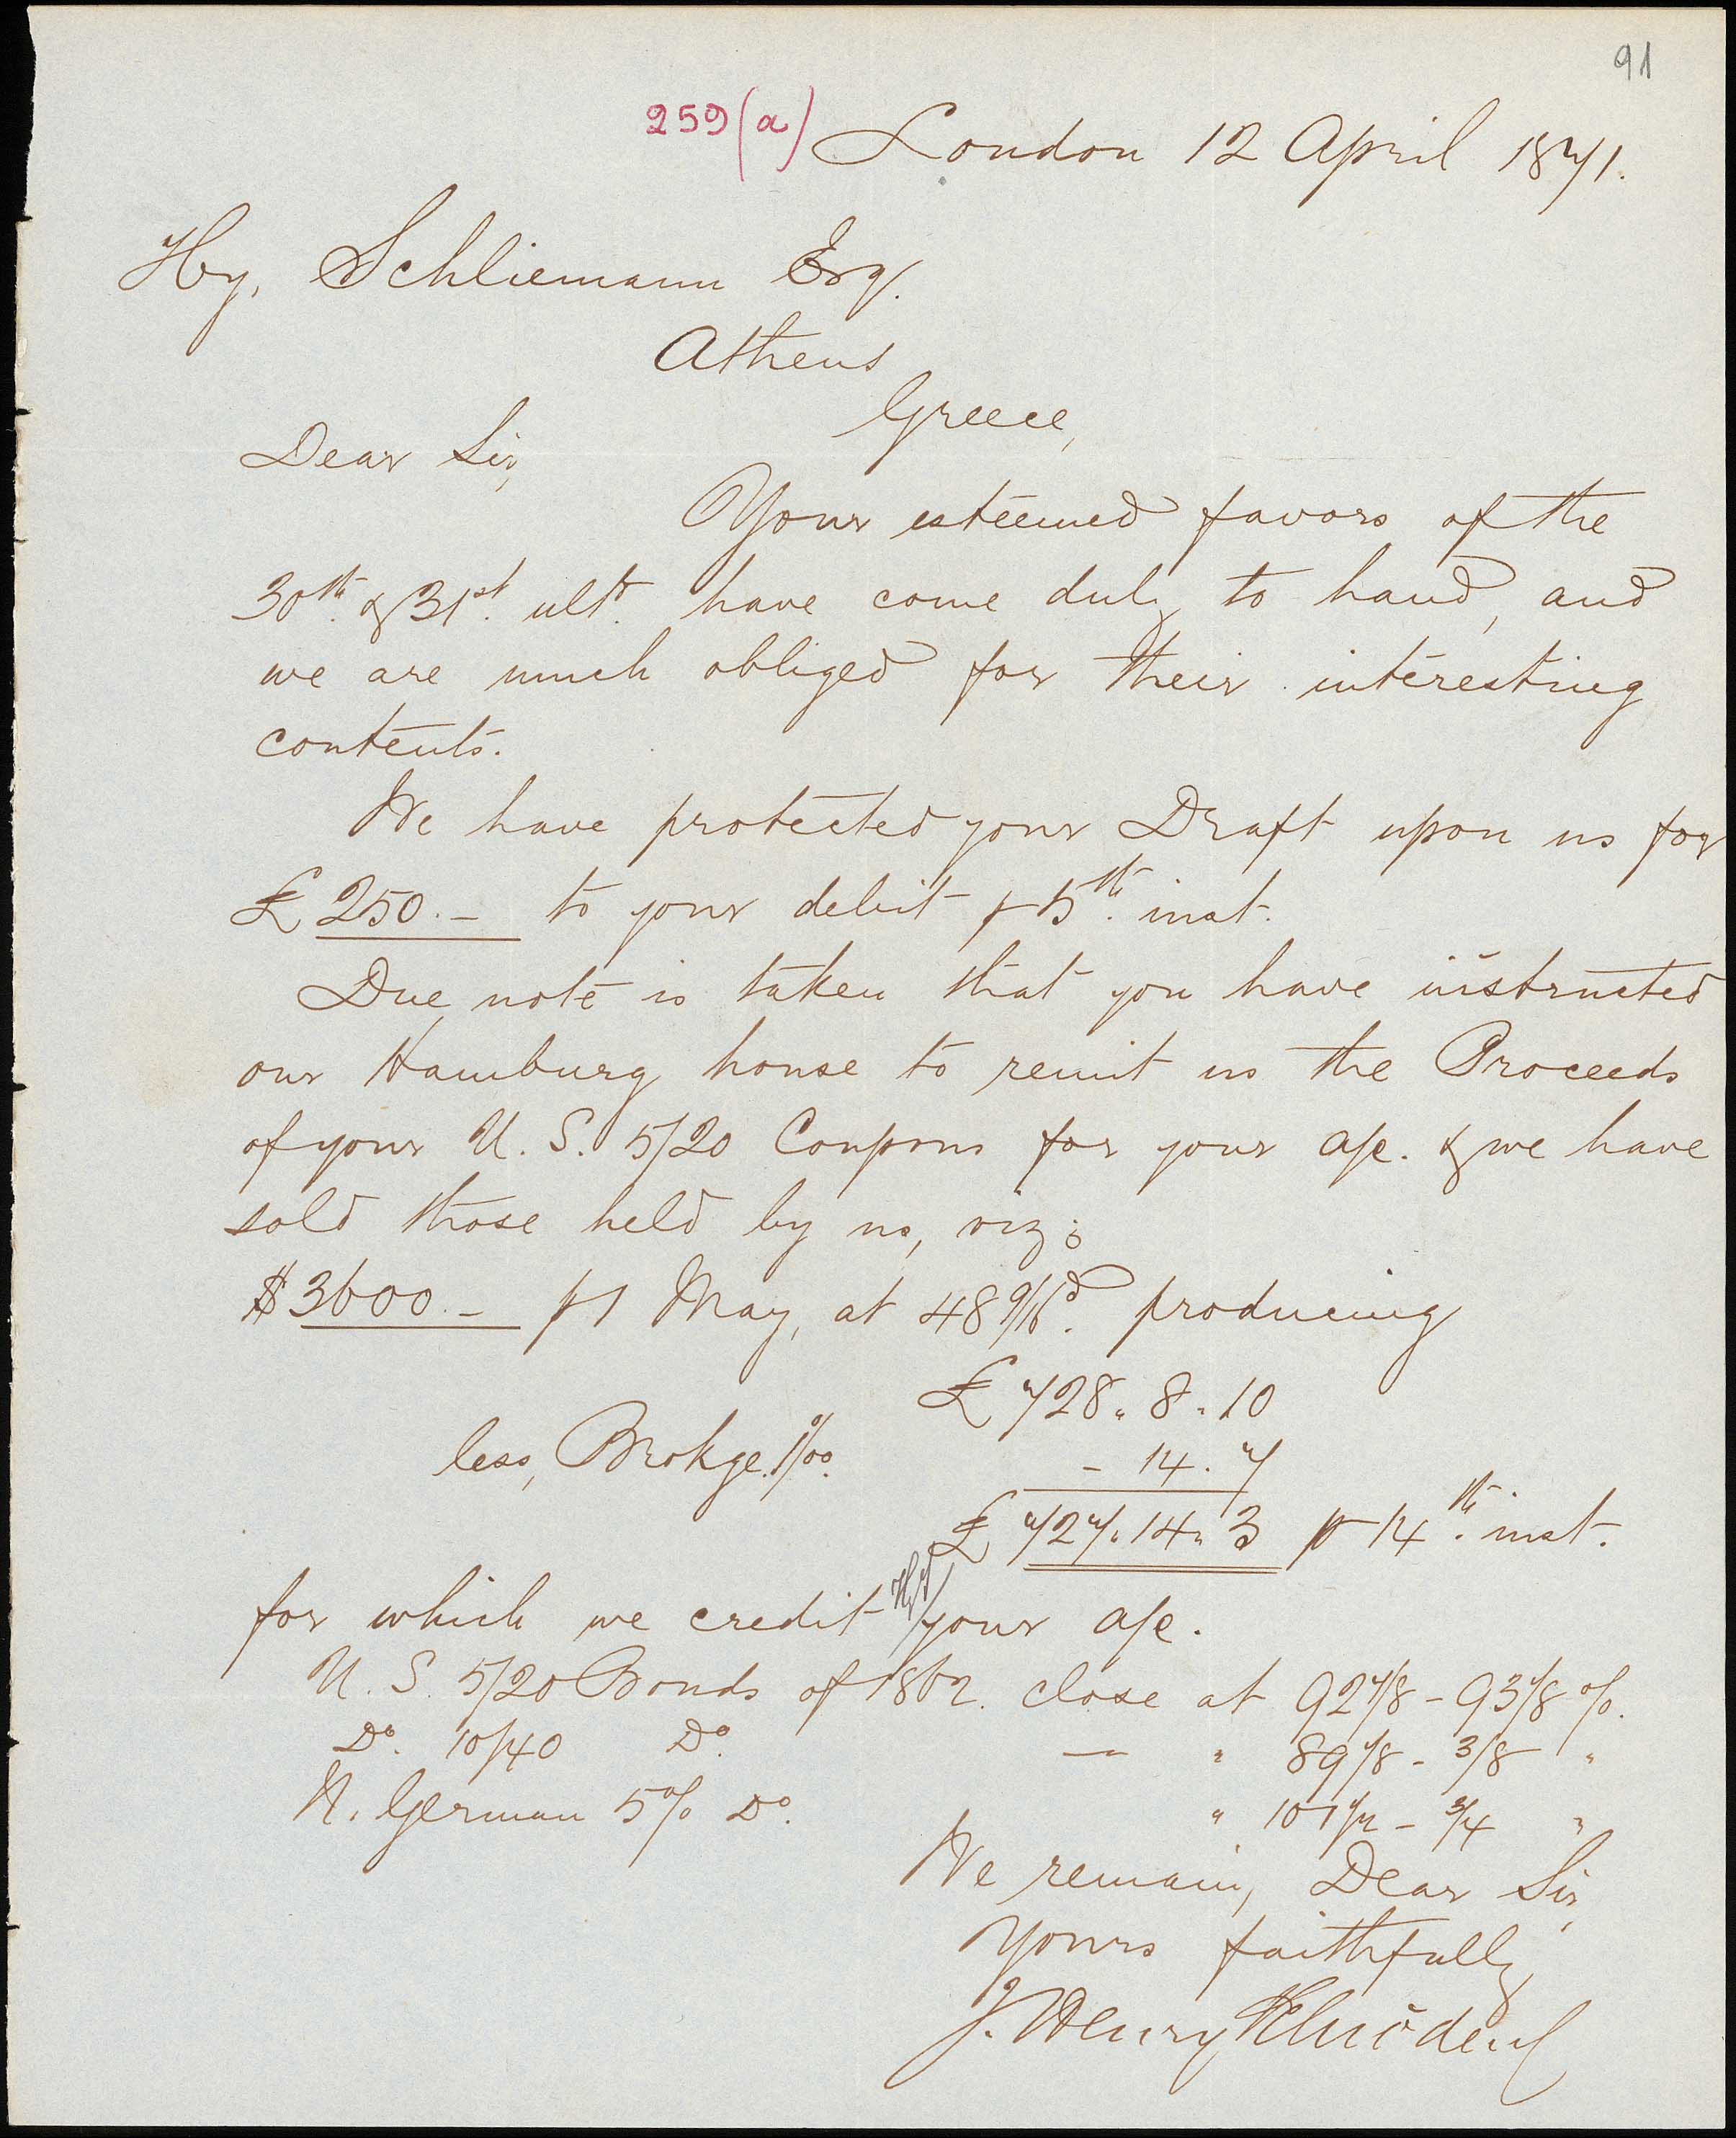 91
259(a)
London 12 April 1871.
Hy. Schliemann Esq.
Athens
Greece,
Dear Sir,
Your esteemed favors of the
30th. & 31st. ulto. have come duly to hand, and
we are much obliged for their interesting
contents.
We have protected your Draft upon us for
£250.- to your debit p 5th. inst.
Due note is taken that you have instructed
our Hamburg house to remit us the Proceeds
of your U.S. 5/20 Coupons for your a/c. & we have
sold those held by us, viz:
$3600.- p 1 May, at 48 9/16d. producing
£728. 8. 10
less, Brokge. 1‰.
- 14. 7
£727. 14. 3 p 14th. inst.
for which we credit your a/c.
U.S. 5/20 Bonds of 1862. close at 92 7/8 - 93 1/8 %.
Do. 10/40 Do. — " 89 1/8 - 3/8 "
N. German 5% Do. " 101 1/2 - 3/4 "
We remain, Dear Sir,
Yours faithfully
J. Henry Schröder